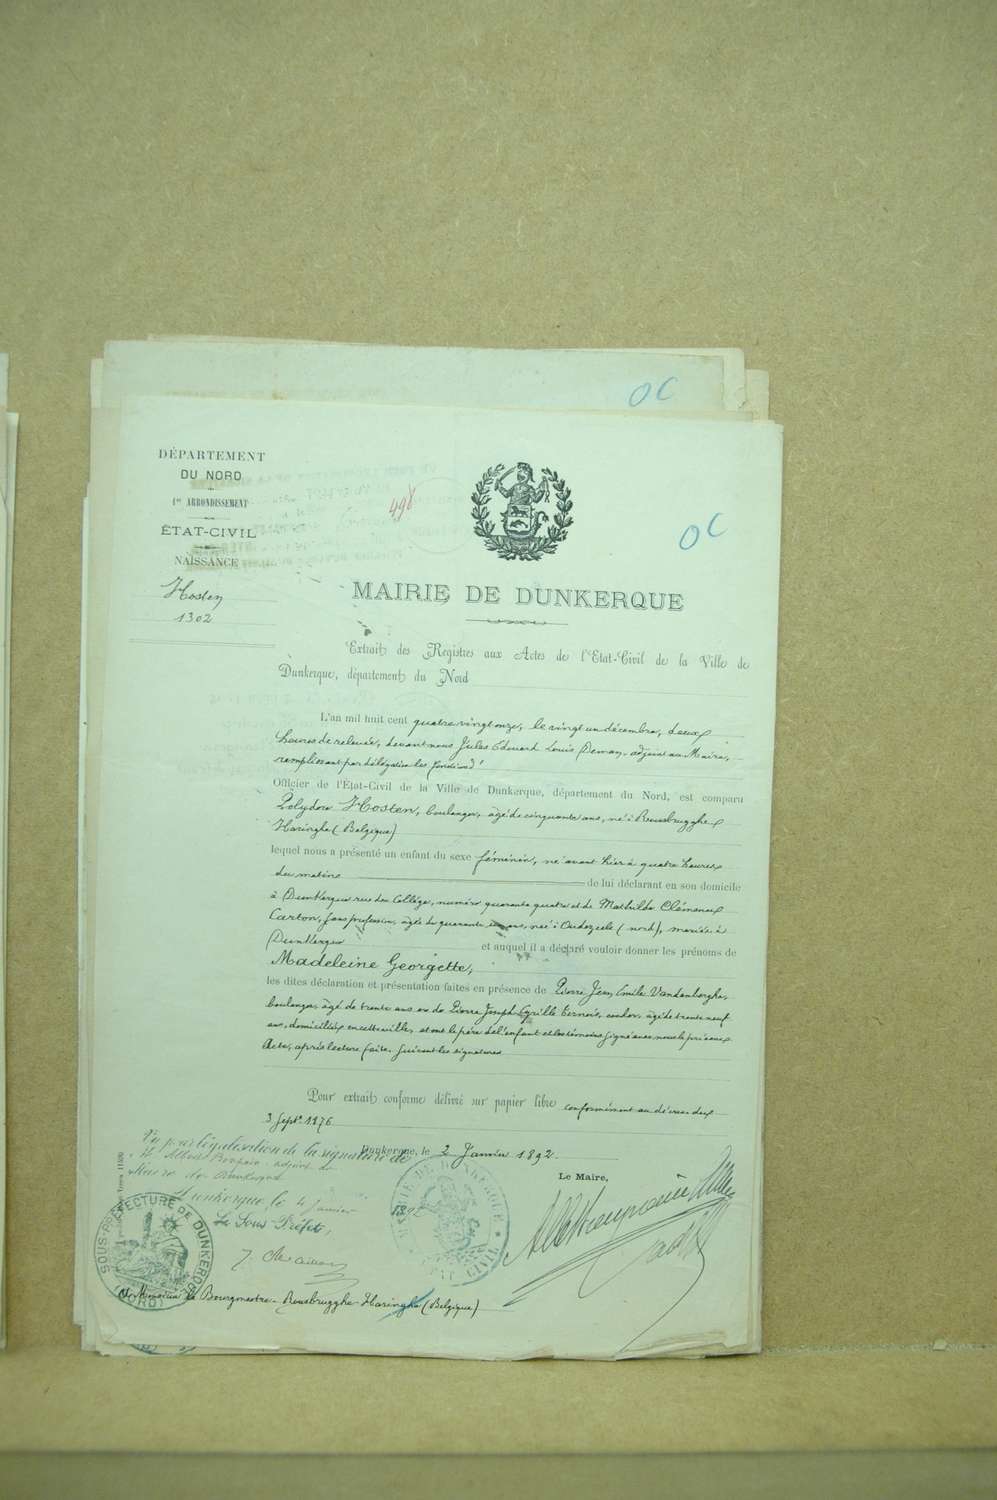 OC
DÉPARTEMENT
DU NORD
1er ARRONDISSEMENT
ÉTAT-CIVIL
NAISSANCE
Hosten
1302
498
OC
MAIRIE DE DUNKERQUE
Extrait des Registres aux Actes de l'Etat-Civil de la Ville de
Dunkerque, département du Nord
L'an mil huit cent quatre vingt onze, le vingt un décembre, deux
heures de relevée, devant nous Jules Edouard Louis Deman, adjoint au Maire,
remplissant par délégation les fonctions d'
Officier de l'État-Civil de la Ville de Dunkerque, département du Nord, est comparu
Polydore Hosten, boulanger, âgé de cinquante ans, né à Rousbrugghe
Haringhe (Belgique)
lequel nous a présenté un enfant du sexe féminin, né avant hier à quatre heures
du matin de lui déclarant en son domicile
à Dunkerque rue du Collège, numéro quarante quatre et de Mathilde Clémence
Carton, sans profession, âgée de quarante ans, née à Oudezeele (nord), mariée à
Dunkerque et auquel il a déclaré vouloir donner les prénoms de
Madeleine Georgette,
les dites déclaration et présentation faites en présence de Pierre Jean Emile Vandenberghe,
boulanger, âgé de trente ans et de Pierre Joseph Cyrille âgé de trente neuf
ans, domiciliés en cette ville, et ont le père de l'enfant et les témoins signé avec nous le présent
Acte, après lecture faite. Suivent les signatures
Pour extrait conforme délivré sur papier libre conformément au décret du
3 Septe 1876
Dunkerque, le 2 Janvier 1892.
Vu par légalisation de la signature de
M. Albert adjoint au
Maire de Dunkerque
Dunkerque, le 4 Janvier 1892
Le Sous Préfet,
Le Maire,
SOUS-PRÉFECTURE DE DUNKERQUE
(NORD)
MAIRIE DE DUNKERQUE
ETAT CIVIL
à Monsieur le Bourgmestre Rousbrugghe-Haringhe (Belgique)